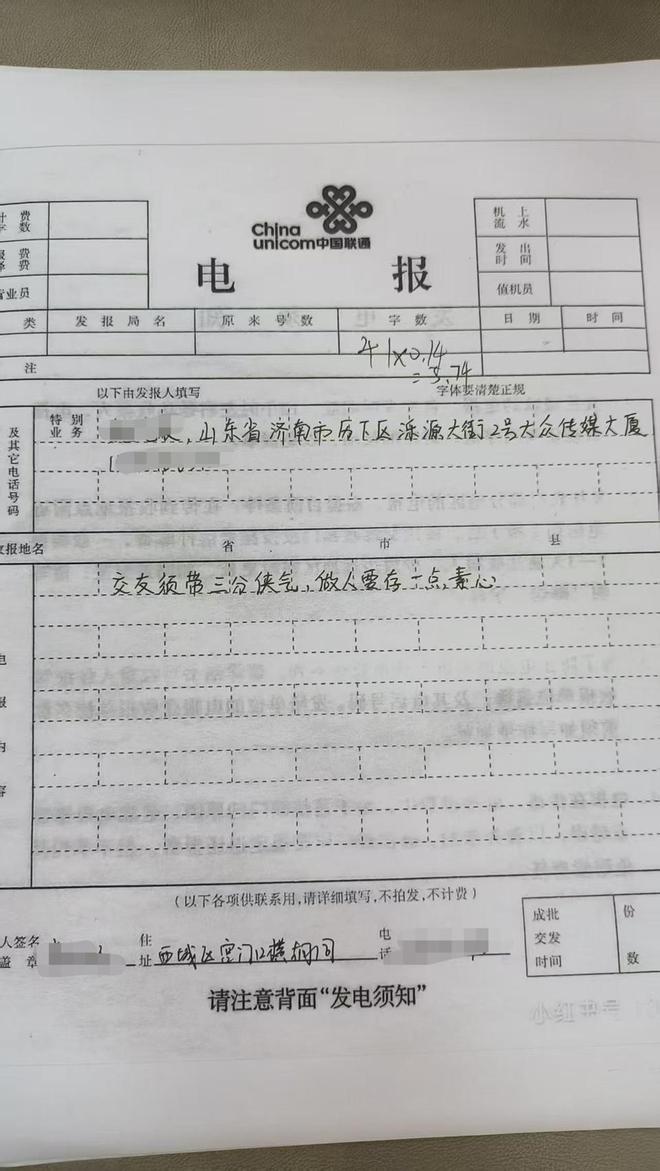 China
unicom中国联通
电 报
计 费
字 数
报 费
译 费
营业员
机 上
流 水
发 出
时 间
值机员
类 发 报 局 名 原 来 号 数 字 数 日 期 时 间
41×0.14
=5.74
注
以下由发报人填写 字体要清楚正规
特 别
业 务
及其它电话号码
山东省济南市历下区泺源大街2号大众传媒大厦
收报地名 省 市 县
电报内容
交友须带三分侠气,做人要存一点素心
(以下各项供联系用,请详细填写,不拍发,不计费)
人签名 住 电
盖 章 址 西城区宫门口横胡同 话
成批
交发
时间
份
数
请注意背面“发电须知”